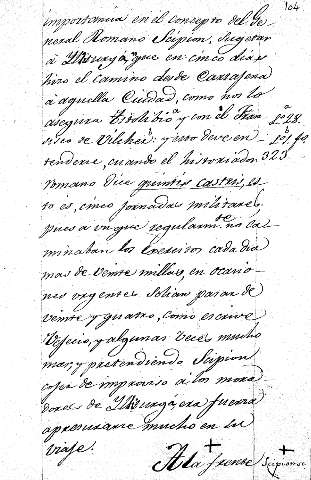 104
importancia en el concepto del Ge-
neral Romano Scipion, sugetar
á Ylliturgi, que en cinco dias
hizo el camino desde Cartajena
à aquella Ciudad, como nos lo
asegura y con él Fran-
cisco de Vilches: y esto deve en-
tenderse, cuando el historiador
323
romano dice quintis castris, es-
to es, cinco jornadas militares,
pues aunque regularmte no ca-
minaban los Exercitos cada dia
mas de veinte millas, en ocasio-
nes urgentes solian pasar de
veinte y quatro, como escrive
Vejecio, y algunas veces mucho
mas, y pretendiendo Scipion
cojer de improviso à los mora-
dores de era fuerza
apresurarse mucho en su
viaje.
A la frente Scipion se